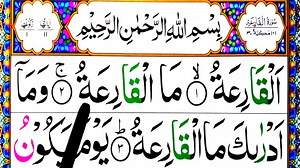 بِسْمِ اللّٰهِ الرَّحْمٰنِ الرَّحِيْمِ
اَلْقَارِعَةُ ۙ﴿۱﴾ مَا الْقَارِعَةُ ۚ﴿۲﴾ وَمَاۤ
اَدْرٰىكَ مَا الْقَارِعَةُ ؕ﴿۳﴾ يَوْمَ يَكُوْنُ